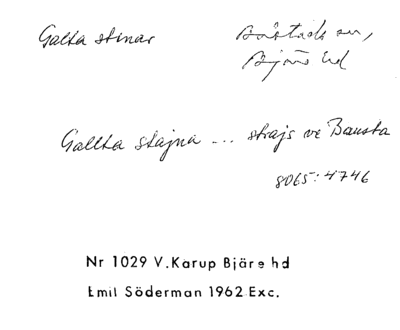 Galta stenar
Båstads sn,
Bjäre hd
Gallta stajna ... strajs ve Bausta
8065:4746
Nr 1029 V.Karup Bjäre hd
Emil Söderman 1962 Exc.